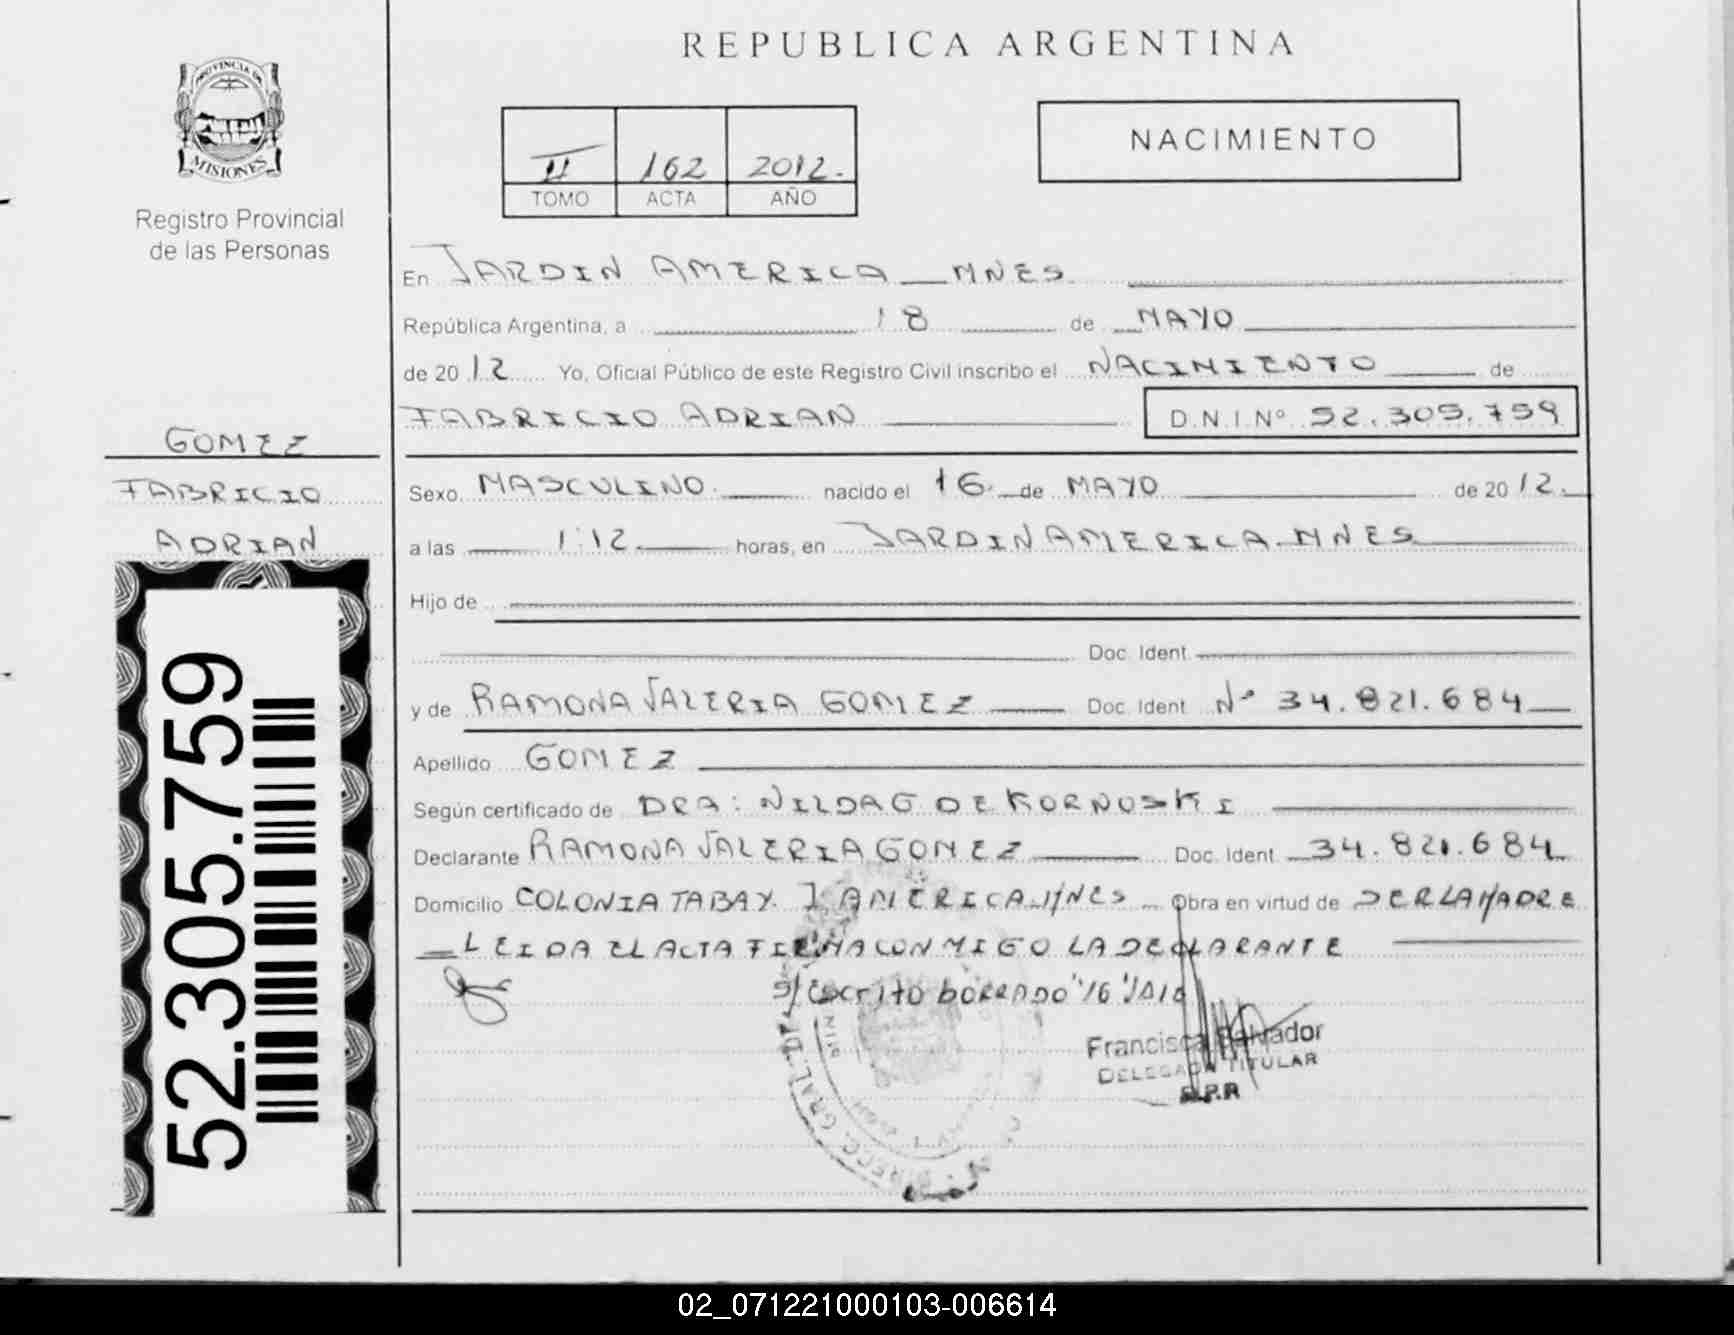 REPUBLICA ARGENTINA
PROVINCIA DE
MISIONES
Registro Provincial
de las Personas
II 162 2012.
TOMO ACTA AÑO
NACIMIENTO
En JARDIN AMERICA MNES
República Argentina, a 18 de MAYO
de 2012 Yo, Oficial Público de este Registro Civil inscribo el NACIMIENTO de
FABRICIO ADRIAN D.N.I.Nº 52.305.759
GOMEZ
FABRICIO
ADRIAN
52.305.759
Sexo MASCULINO. nacido el 16. de MAYO de 2012.
a las 1:12 horas, en JARDIN AMERICA - MNES
Hijo de
Doc. Ident.
y de RAMONA VALERIA GOMEZ Doc. Ident. Nº 34.821.684
Apellido GOMEZ
Según certificado de DRA: NILDA G DE KORNOSKI
Declarante RAMONA VALERIA GOMEZ Doc. Ident. 34.821.684
Domicilio COLONIA TABAY. J. AMERICA-MNES Obra en virtud de SER LA MADRE
LEIDA EL ACTA FIRMA CON MIGO LA DECLARANTE
S/ escrito borrado "16"
Francisca Salvador
DELEGADA TITULAR
R.P.P.
DIRECC. GRAL. DE
02_071221000103-006614